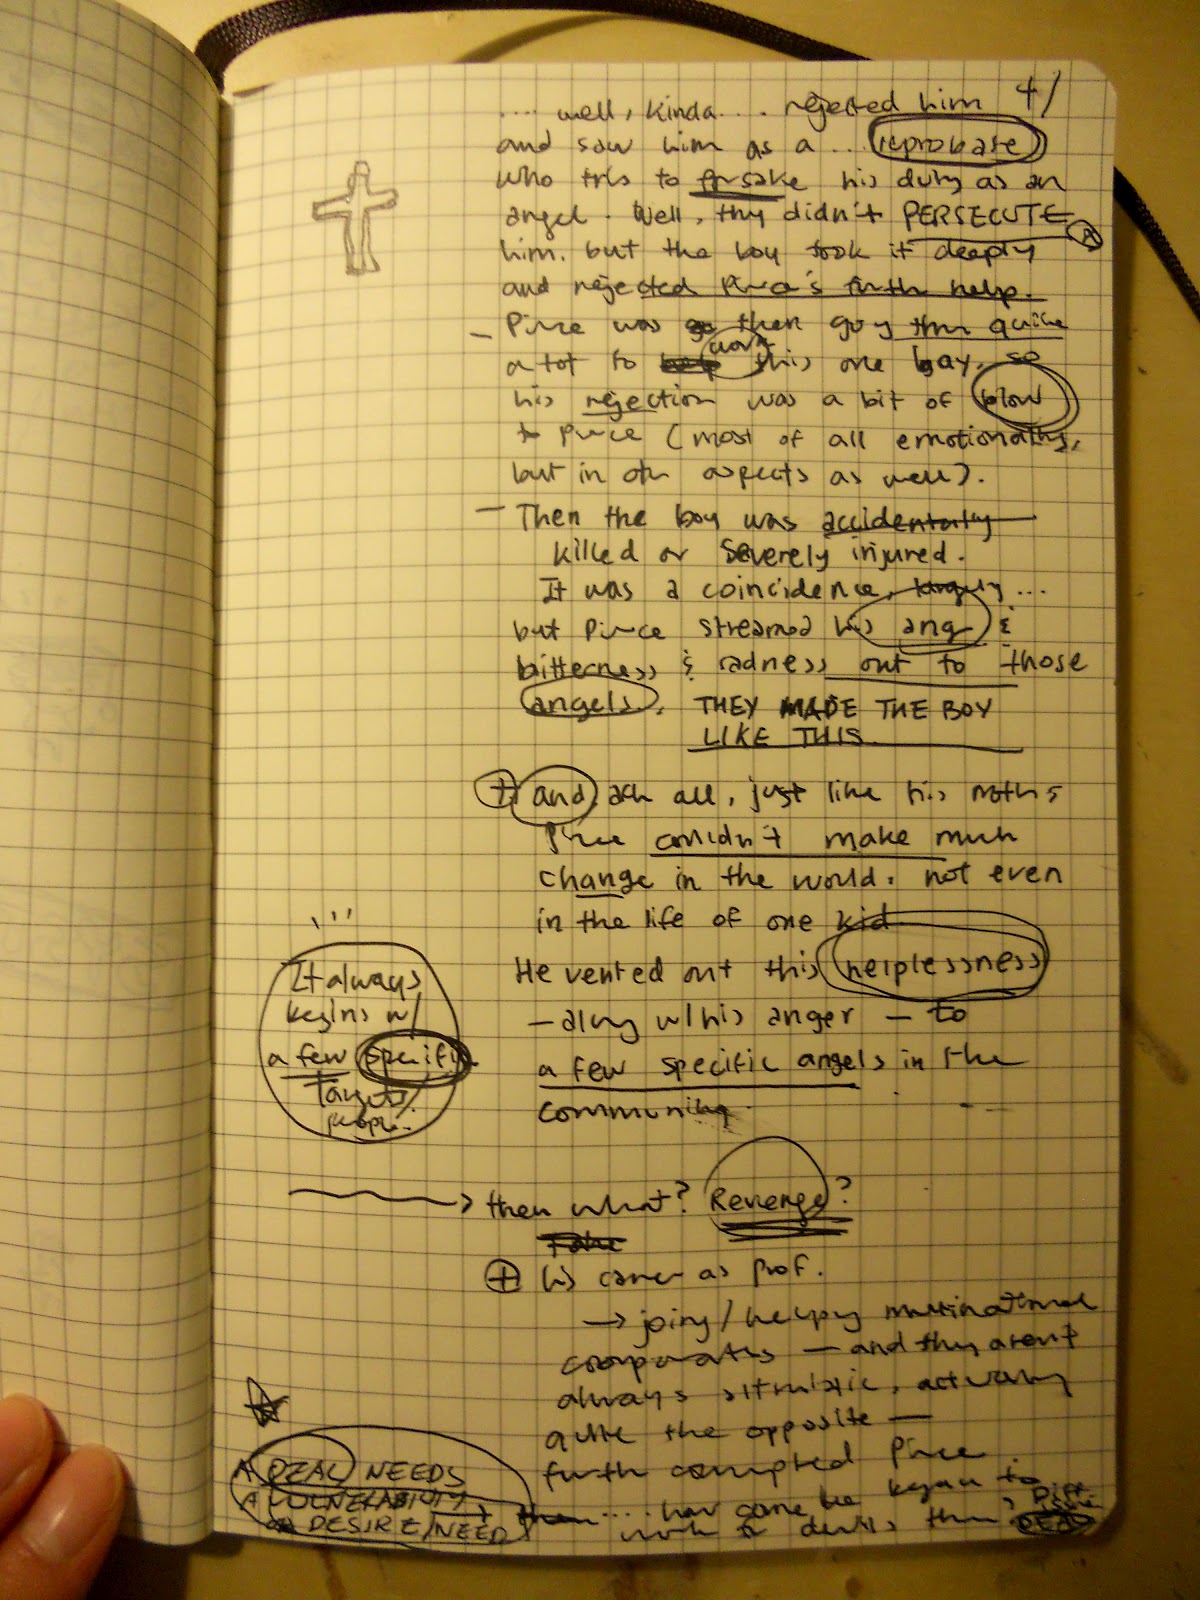 4/
.... well, kinda.... rejected him
and saw him as a ... reprobate
who tris to forsake his duty as an
angel. Well, thy didn't PERSECUTE
him. but the boy took it deeply
and rejected Pirce's furth help.
- Pirce was then guy thn quite
a lot to work this one boy, so
his rejection was a bit of blow
to Pirce (most of all emotionally,
but in oth aspects as well).
- Then the boy was accidentally
killed or severely injured.
It was a coincidence, largely ...
but Pirce streamed his ang &
bitterness & sadness out to those
angels. THEY MADE THE BOY
LIKE THIS.
+ and all, just like his
Pirce couldn't make much
change in the world. not even
in the life of one kid
He vented out this helplessness
- along w/ his anger - to
a few specific angels in the
community.
It always
begins w/
a few specific
targets/
people.
→ then what? Revenge?
+ his career as prof.
→ joing/helping multinational
corporates - and they aren't
always altruistic, actually
quite the opposite -
furth corrupted Pirce
.... how come he began to
work for devils then?
A DEAL NEEDS
A VULNERABILITY
DESIRE/NEED